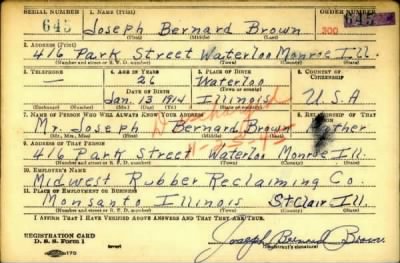 SERIAL NUMBER 1. NAME (Print) ORDER NUMBER
645 Joseph Bernard Brown 645
300
(First) (Middle) (Last)
2. ADDRESS (Print)
416 Park Street Waterloo Monroe Ill.
(Number and street or R. F. D. number) (Town) (County) (State)
3. TELEPHONE 4. AGE IN YEARS 5. PLACE OF BIRTH 6. COUNTRY OF CITIZENSHIP
— 26 Waterloo
DATE OF BIRTH (Town or county)
Jan. 13 1914 Illinois U.S.A
(Exchange) (Number) (Mo.) (Day) (Yr.) (State or country)
7. NAME OF PERSON WHO WILL ALWAYS KNOW YOUR ADDRESS 8. RELATIONSHIP OF THAT PERSON
Mr. Joseph Bernard Brown Father
(Mr., Mrs., Miss) (First) (Middle) (Last)
9. ADDRESS OF THAT PERSON
416 Park Street Waterloo Monroe Ill.
(Number and street or R. F. D. number) (Town) (County) (State)
10. EMPLOYER'S NAME
Midwest Rubber Reclaiming Co.
11. PLACE OF EMPLOYMENT OR BUSINESS
Monsanto Illinois St Clair Ill.
(Number and street or R. F. D. number) (Town) (County) (State)
I AFFIRM THAT I HAVE VERIFIED ABOVE ANSWERS AND THAT THEY ARE TRUE.
REGISTRATION CARD
D. S. S. Form 1 (over)
Joseph Bernard Brown